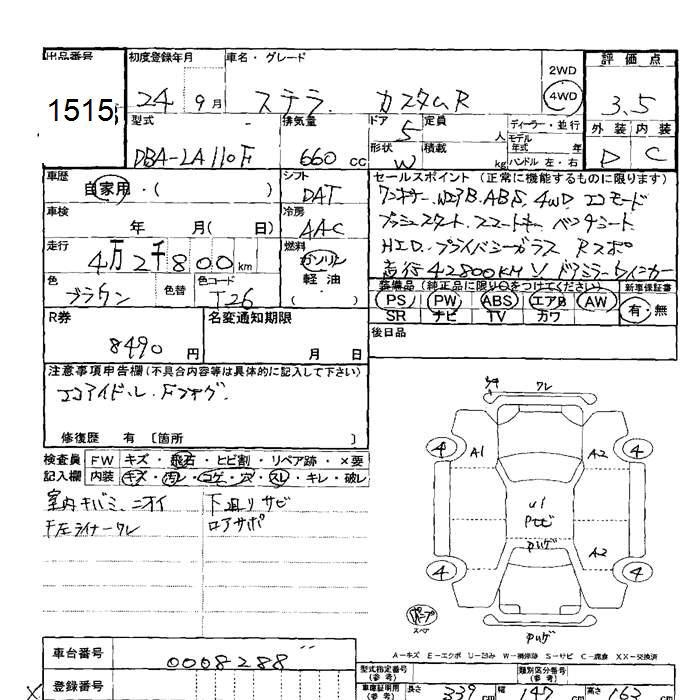 出品番号 初度登録年月 車名・グレード 評価点
1515 24 9月 ステラ カスタムR 2WD 4WD 3.5
型式 排気量 ドア 5 定員 人 ディーラー・並行 外装 内装
DBA-LA110F 660 cc 形状 W 積載 kg モデル年式 年 ハンドル 左・右 D C
車歴 自家用・( ) シフト DAT セールスポイント (正常に機能するものに限ります)
車検 年 月(日) 冷房 AAC ワンオナー. WエアB. ABS. 4WD エコモード
プッシュスタート. スマートキー ベンチシート
走行 4万2千800km 燃料 ガソリン 軽油 ( ) HID. プライバシーガラス Rスポ
走行42800KM ドアミラーウインカー
色 ブラウン 色替 色コード T26 装備品 (純正品に限り○をつけてください) 新車保証書
PS PW ABS エアB AW 有・無
SR ナビ TV カワ
R券 8490円 名変通知期限 月 日 後日品
注意事項申告欄 (不具合内容等は具体的に記入して下さい)
エコアイドル. Fフォグ.
修復歴 有 〔箇所 〕
検査員 FW キズ・飛石・ヒビ割・リペア跡・×要
記入欄 内装 キズ・汚レ・コゲ・穴・スレ・キレ・破レ
室内キバミ. ニオイ 下廻リサビ
F左ライナーワレ ロアサポ
ワレ
4 A1 A2 4
U1
Pセビ
Pハゲ
A2
4 4
スペア
Pハゲ
A－キズ E－エクボ U－凹み W－補修跡 S－サビ C－腐食 XX－交換済
車台番号 0008288
型式指定番号 (参考) 類別区分番号 (参考)
登録番号
車庫証明用 (参考) 長さ 339 cm 幅 147 cm 高さ 163 cm